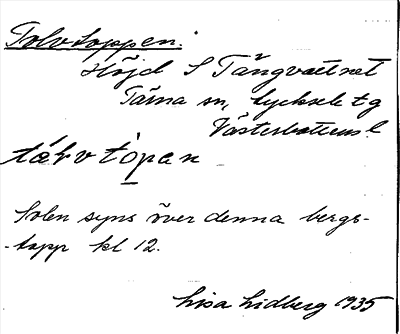 Tolvtoppen.
Höjd S Tängvattnet
Tärna sn, Lycksele tg
Västerbottens l
tålv tòpan
Solen syns över denna bergs-
-topp kl 12.
Lisa Lidberg 1935